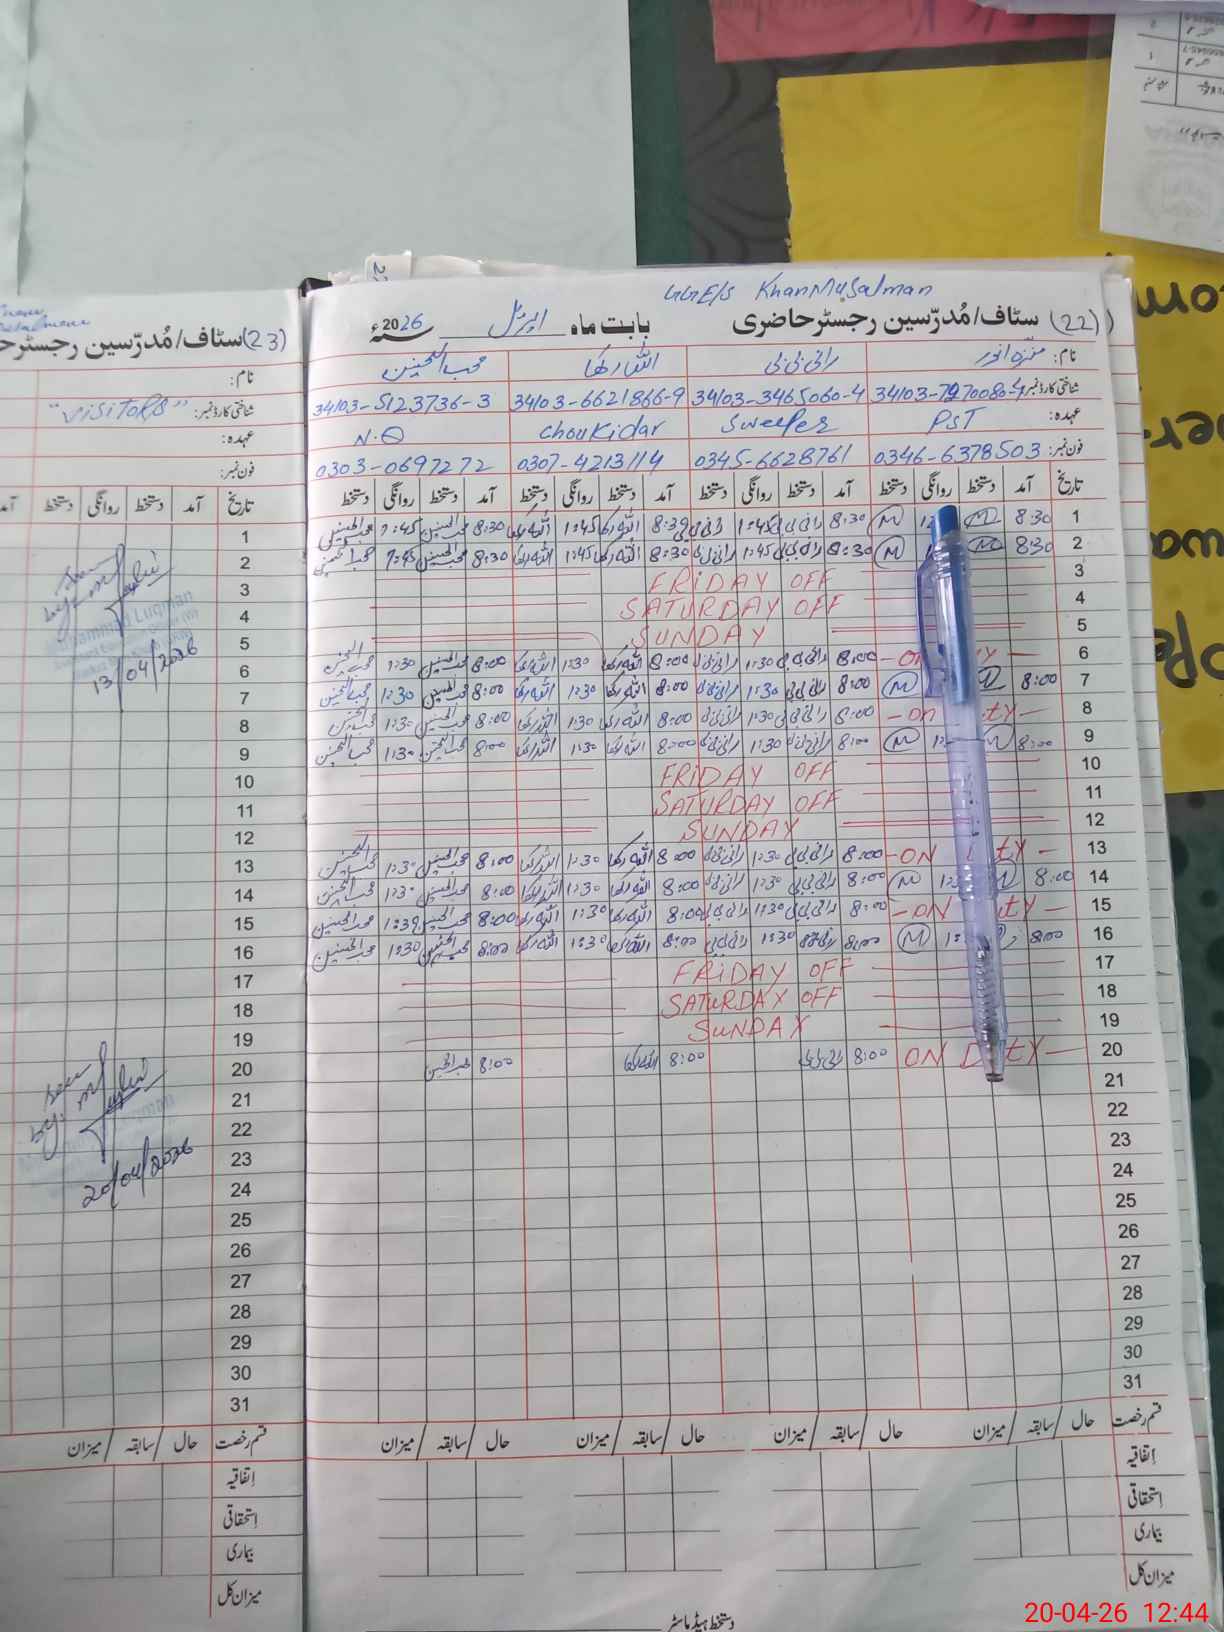 GGE/S KhanMusalman
(22) سٹاف/مُدرّسین رجسٹر حاضری بابت ماہ اپریل 2026ء
نام: منزہ انور رانی بی بی اللہ رکھا محب الحسنین
شناختی کارڈ نمبر: 34103-3465060-4 34103-6621866-9 34103-5123736-3
عہدہ: PST Sweeper Choukidar N.Q
فون نمبر: 0346-6378503 0345-6628761 0307-4213114 0303-0697272
تاریخ آمد دستخط روانگی دستخط آمد دستخط روانگی دستخط آمد دستخط روانگی دستخط آمد دستخط روانگی دستخط
1 8:30 M M 8:30 رانی بی بی 1:45 رانی بی بی 8:30 اللہ رکھا 1:45 اللہ رکھا 8:30 محب الحسنین 1:45 محب الحسنین
2 8:30 M M 8:30 رانی بی بی 1:45 رانی بی بی 8:30 اللہ رکھا 1:45 اللہ رکھا 8:30 محب الحسنین 1:45 محب الحسنین
3 FRIDAY OFF
4 SATURDAY OFF
5 SUNDAY
6 8:00 رانی بی بی 1:30 رانی بی بی 8:00 اللہ رکھا 1:30 اللہ رکھا 8:00 محب الحسنین 1:30 محب الحسنین
7 8:00 M M 8:00 رانی بی بی 1:30 رانی بی بی 8:00 اللہ رکھا 1:30 اللہ رکھا 8:00 محب الحسنین 1:30 محب الحسنین
8 8:00 رانی بی بی 1:30 رانی بی بی 8:00 اللہ رکھا 1:30 اللہ رکھا 8:00 محب الحسنین 1:30 محب الحسنین
9 8:00 M M 8:00 رانی بی بی 1:30 رانی بی بی 8:00 اللہ رکھا 1:30 اللہ رکھا 8:00 محب الحسنین 1:30 محب الحسنین
10 FRIDAY OFF
11 SATURDAY OFF
12 SUNDAY
13 ON 8:00 رانی بی بی 1:30 رانی بی بی 8:00 اللہ رکھا 1:30 اللہ رکھا 8:00 محب الحسنین 1:30 محب الحسنین
14 8:00 M 8:00 رانی بی بی 1:30 رانی بی بی 8:00 اللہ رکھا 1:30 اللہ رکھا 8:00 محب الحسنین 1:30 محب الحسنین
15 ON 8:00 رانی بی بی 1:30 رانی بی بی 8:00 اللہ رکھا 1:30 اللہ رکھا 8:00 محب الحسنین 1:30 محب الحسنین
16 8:00 M 8:00 رانی بی بی 1:30 رانی بی بی 8:00 اللہ رکھا 1:30 اللہ رکھا 8:00 محب الحسنین 1:30 محب الحسنین
17 FRIDAY OFF
18 SATURDAY OFF
19 SUNDAY
20 ON DUTY 8:00 رانی بی بی 8:00 اللہ رکھا 8:00 محب الحسنین
21
22
23
24
25
26
27
28
29
30
31
قسم رخصت حال / سابقہ / میزان حال / سابقہ / میزان حال / سابقہ / میزان حال / سابقہ / میزان
اتفاقیہ
استحقاقی
بیماری
میزان کل
دستخط ہیڈ ماسٹر
(23) سٹاف/مُدرّسین رجسٹر
نام:
شناختی کارڈ نمبر: "VISITORS"
عہدہ:
فون نمبر:
تاریخ آمد دستخط روانگی دستخط
1
2
3
4
5
6
7
8
9
10
11
12
13
14
15
16
17
18
19
20
21
22
23
24
25
26
27
28
29
30
31
Seen
by:
Muhammad Luqman
13/04/2026
Seen
by:
20/04/2026
قسم رخصت حال / سابقہ / میزان
اتفاقیہ
استحقاقی
بیماری
میزان کل
20-04-26 12:44